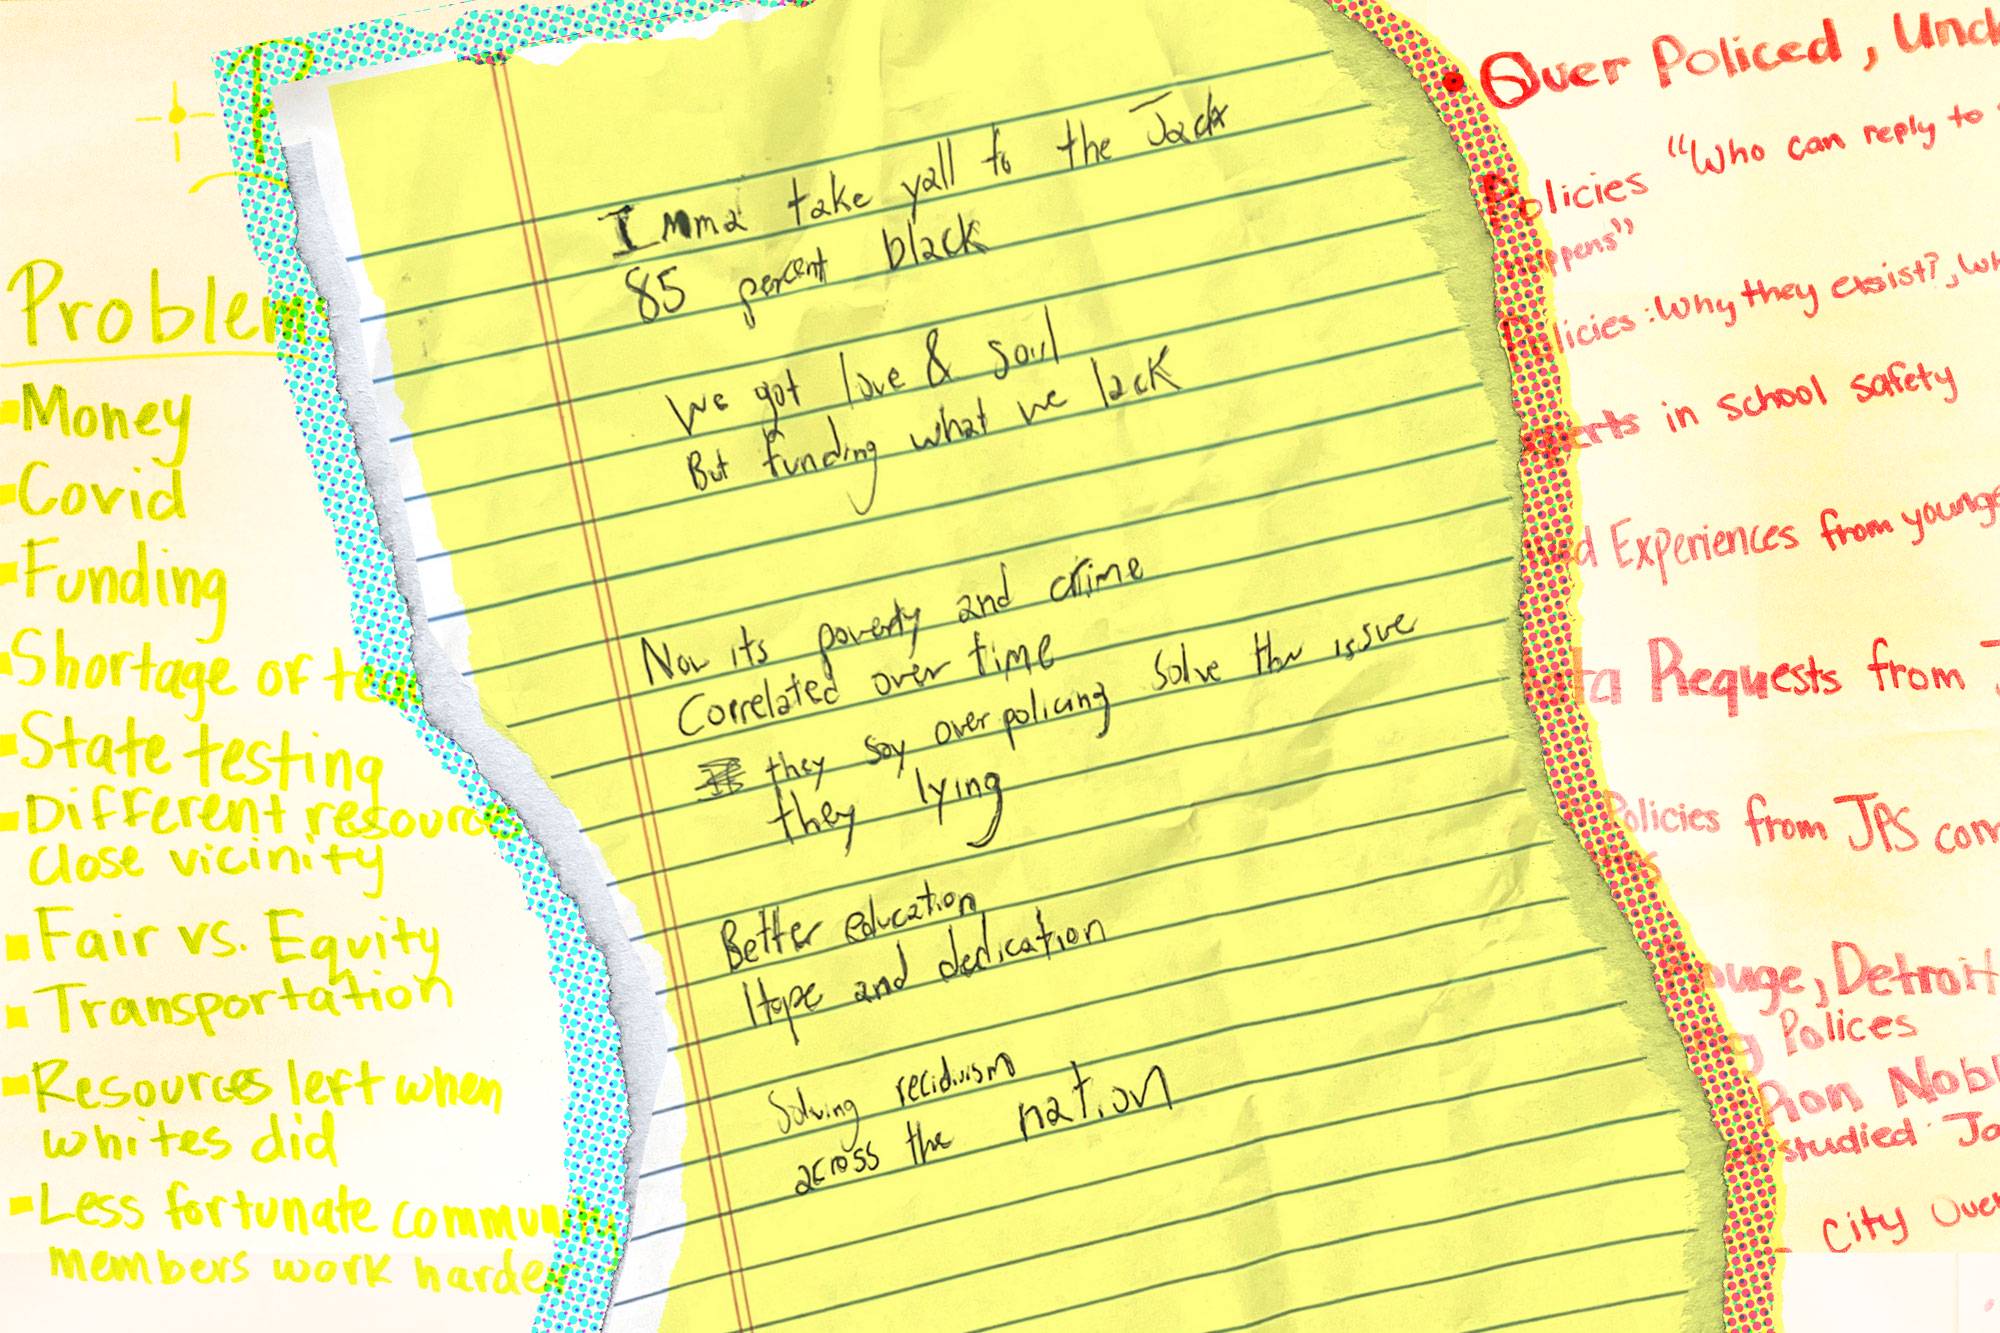 Problem
Money
Covid
Funding
Shortage of tea
State testing
Different resourc
close vicinity
Fair vs. Equity
Transportation
Resources left when
whites did
Less fortunate commun
members work harder
Imma take yall to the Jack
85 percent black
We got love & soul
But funding what we lack
Now its poverty and crime
Correlated over time
they say over policing solve the issue
they lying
Better education
Hope and dedication
Solving recidivism
across the nation
Over Policed, Und
Policies "Who can reply to
ppens"
licies: Why they exsist?, Wh
erts in school safety
ed Experiences from younge
ta Requests from J
Policies from JPS com
ouge, Detroit
g Polices
Rian Nobl
studied Ja
City Over